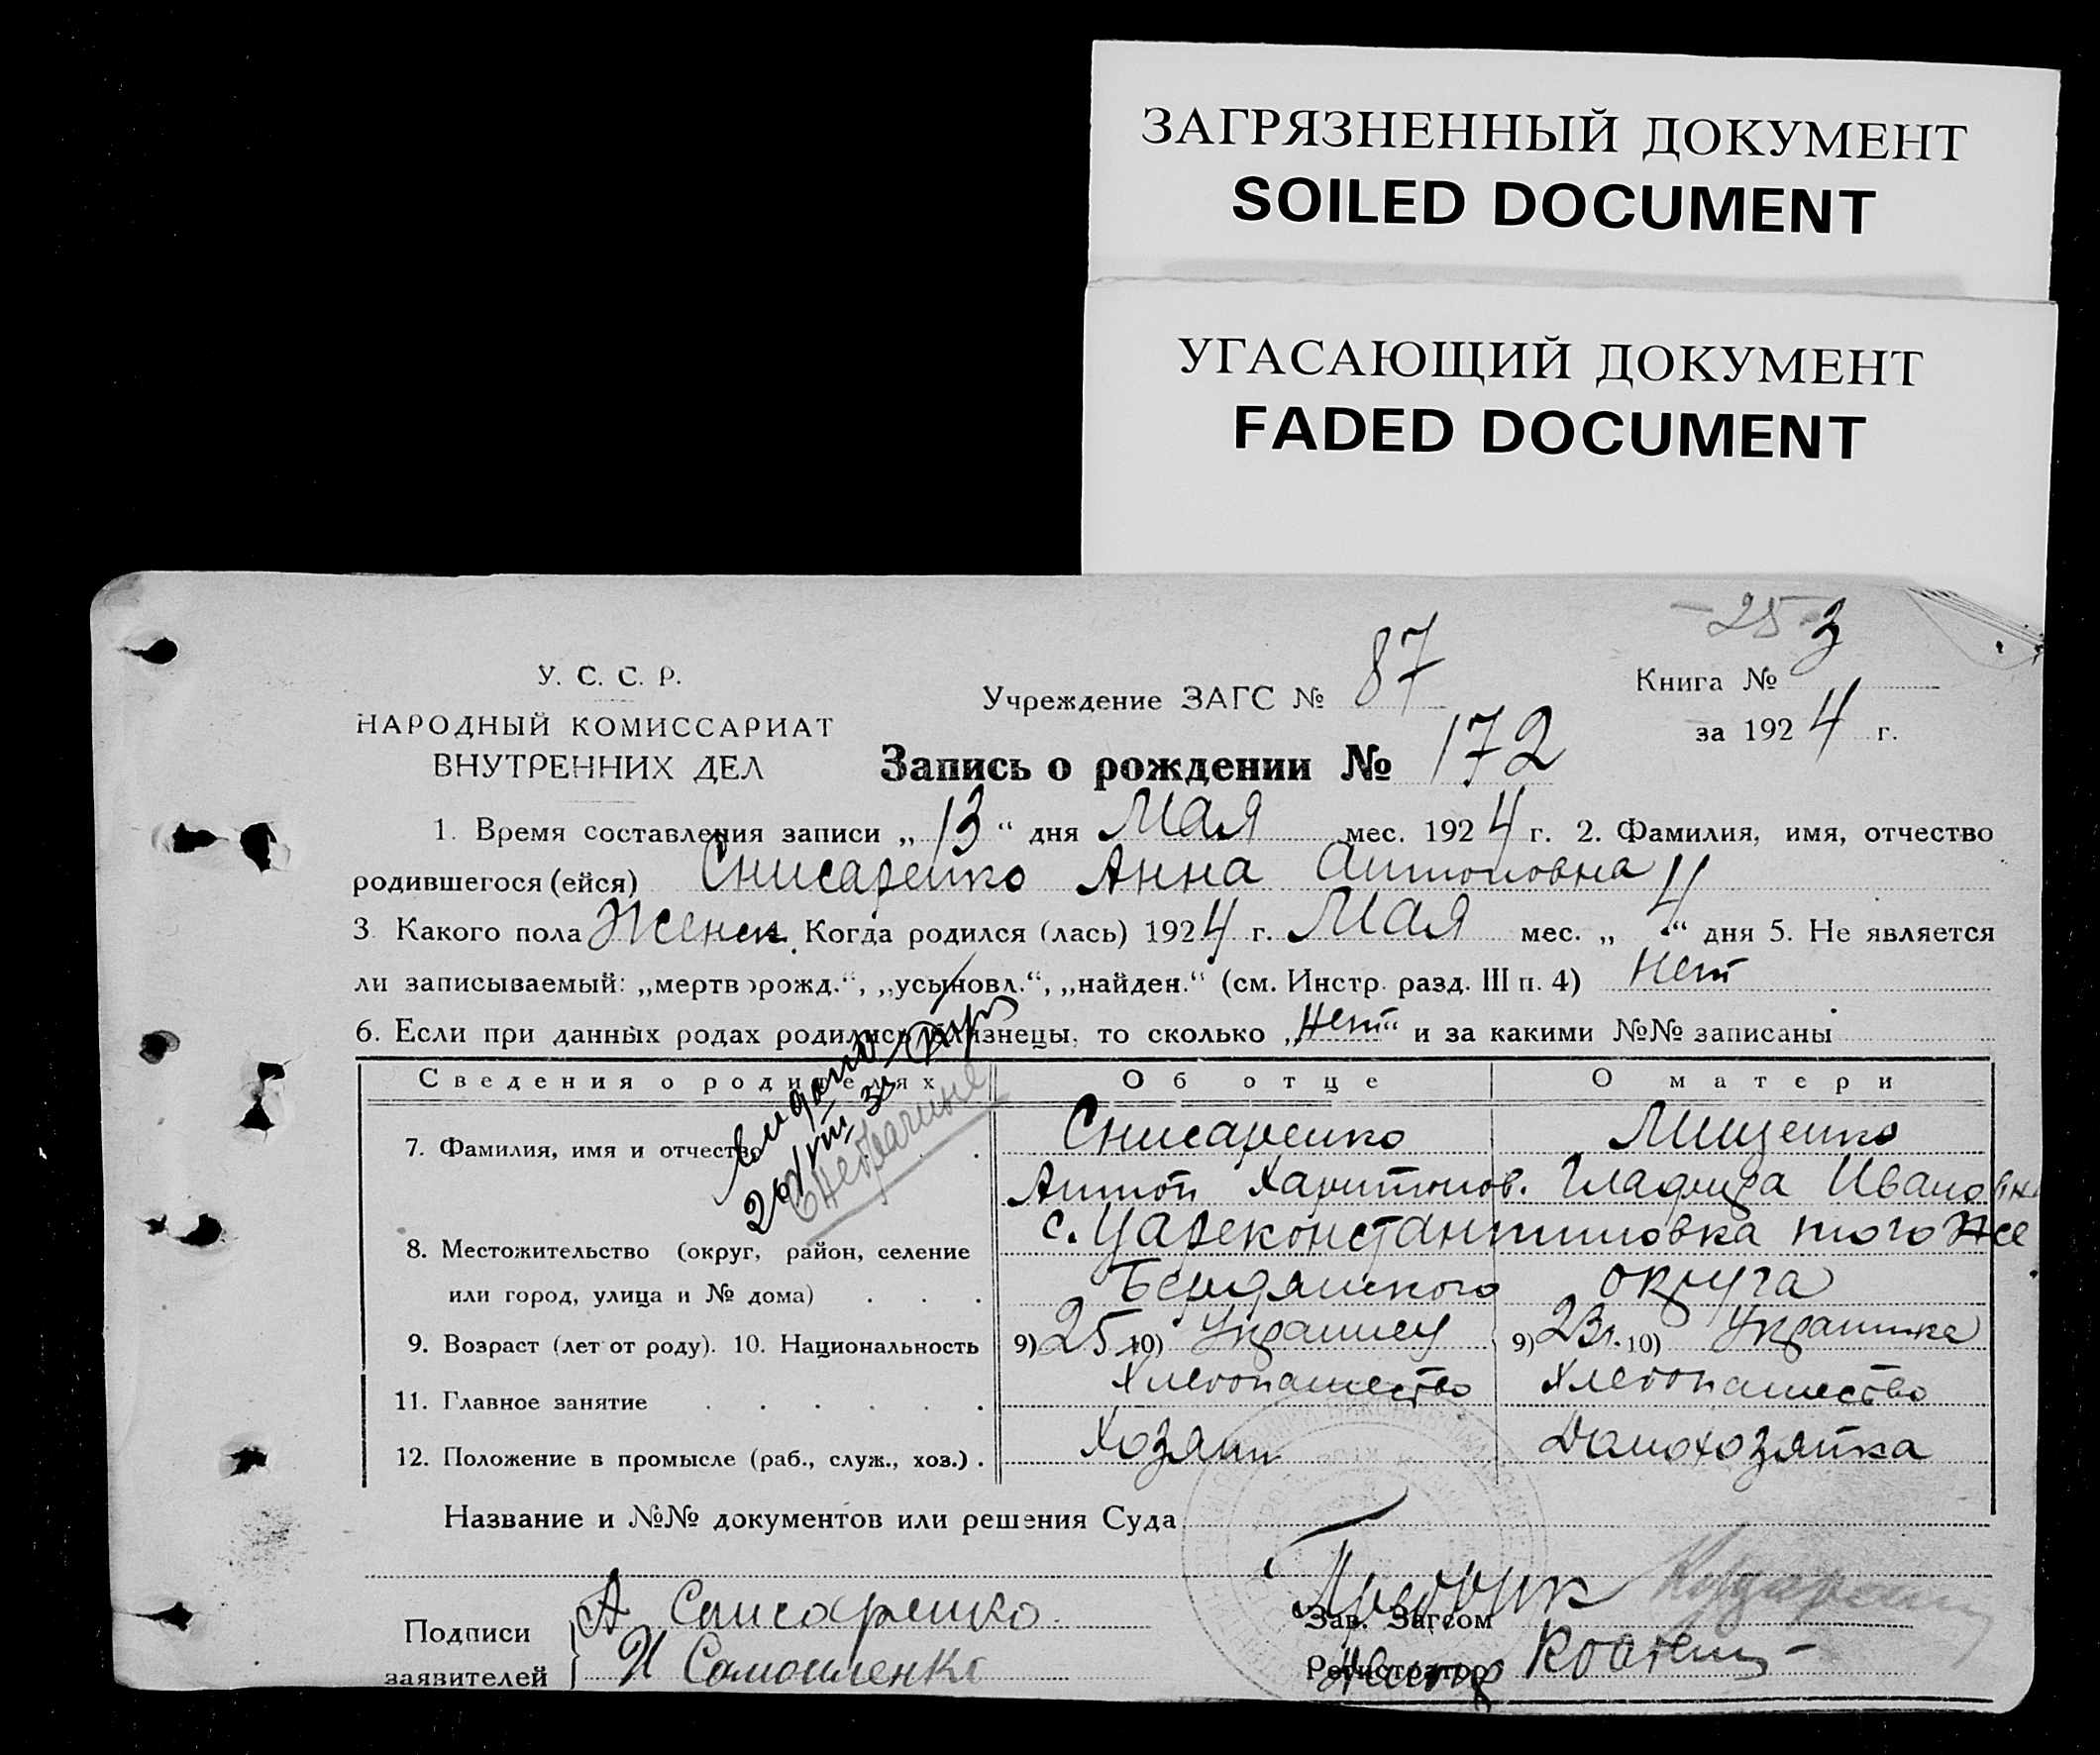 ЗАГРЯЗНЕННЫЙ ДОКУМЕНТ
SOILED DOCUMENT
УГАСАЮЩИЙ ДОКУМЕНТ
FADED DOCUMENT
25 3
У. С. С. Р.
НАРОДНЫЙ КОМИССАРИАТ
ВНУТРЕННИХ ДЕЛ
Учреждение ЗАГС № 87
Книга №
за 1924 г.
Запись о рождении № 172
1. Время составления записи „13“ дня Мая мес. 1924 г. 2. Фамилия, имя, отчество
родившегося (ейся) Снисаренко Анна Антоновна
3 Какого пола Женск. Когда родился (лась) 1924 г. Мая мес. „4“ дня 5. Не является
ли записываемый: „мертворожд.“, „усыновл.“, „найден.“ (см. Инстр. разд. III п. 4) Нет
6. Если при данных родах родились близнецы, то сколько „Нет“ и за какими №№ записаны
Сведения о родителях Об отце О матери
7. Фамилия, имя и отчество Снисаренко Мищенко
Антон Харитонов. Гладкира Ивановн
8. Местожительство (округ, район, селение с. Цареконстантиновка того же
или город, улица и № дома) Бердянского округа
9. Возраст (лет от роду). 10. Национальность 9) 25 10) Украинец 9) 23 л. 10) Украинка
11. Главное занятие Хлебопашество Хлебопашество
12. Положение в промысле (раб., служ., хоз.) . Хозяин Домохозяйка
Название и №№ документов или решения Суда
Подписи заявителей } А Снисаренко
И Самойленко
Зав. Загсом
Регистратор